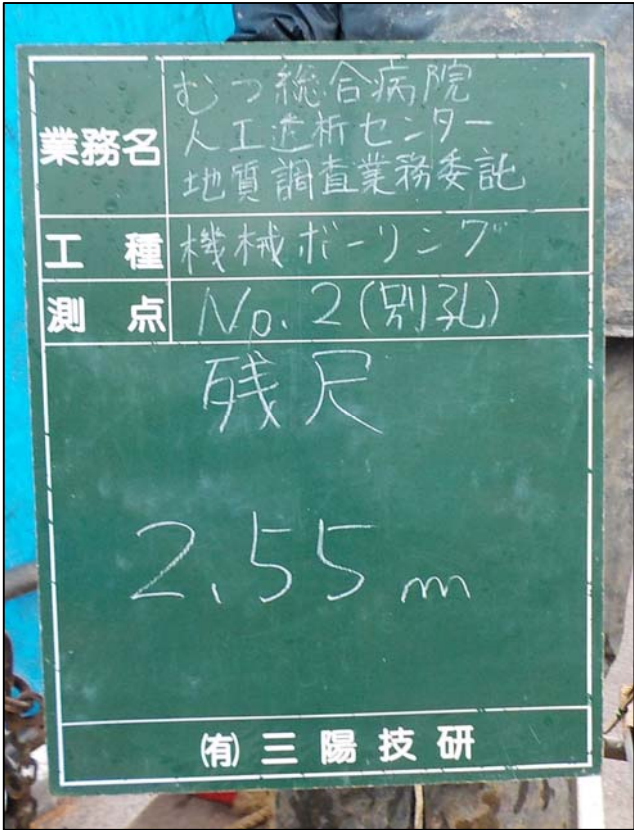 業務名
むつ総合病院
人工透析センター
地質調査業務委託
工種 機械ボーリング
測点 No.2(別孔)
残尺
2.55m
(有)三陽技研